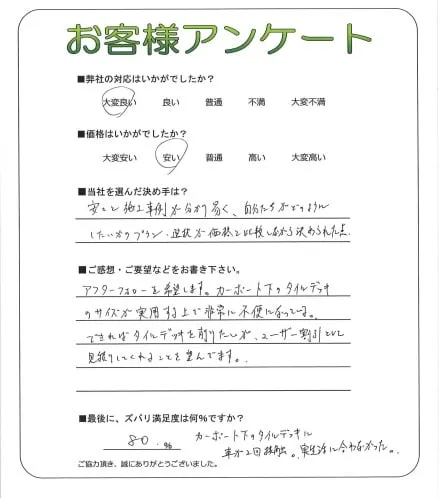 お客様アンケート
■弊社の対応はいかがでしたか?
大変良い 良い 普通 不満 大変不満
■価格はいかがでしたか?
大変安い 安い 普通 高い 大変高い
■当社を選んだ決め手は?
安さと施工事例が分かり易く、自分たちがどのように
したいかのプラン・選択が価格と比較しながら決められた点
■ご感想・ご要望などをお書き下さい。
アフターフォローを希望します。カーポート下のタイルデッキ
のサイズが実用する上で非常に不便になっている。
できればタイルデッキを削りたいが、ユーザー割引として
見積りしてくれることを望んでます。
■最後に、ズバリ満足度は何%ですか?
80.% カーポート下のタイルデッキに
車が2回接触。実生活に合わなかった。
ご協力頂き、誠にありがとうございました。